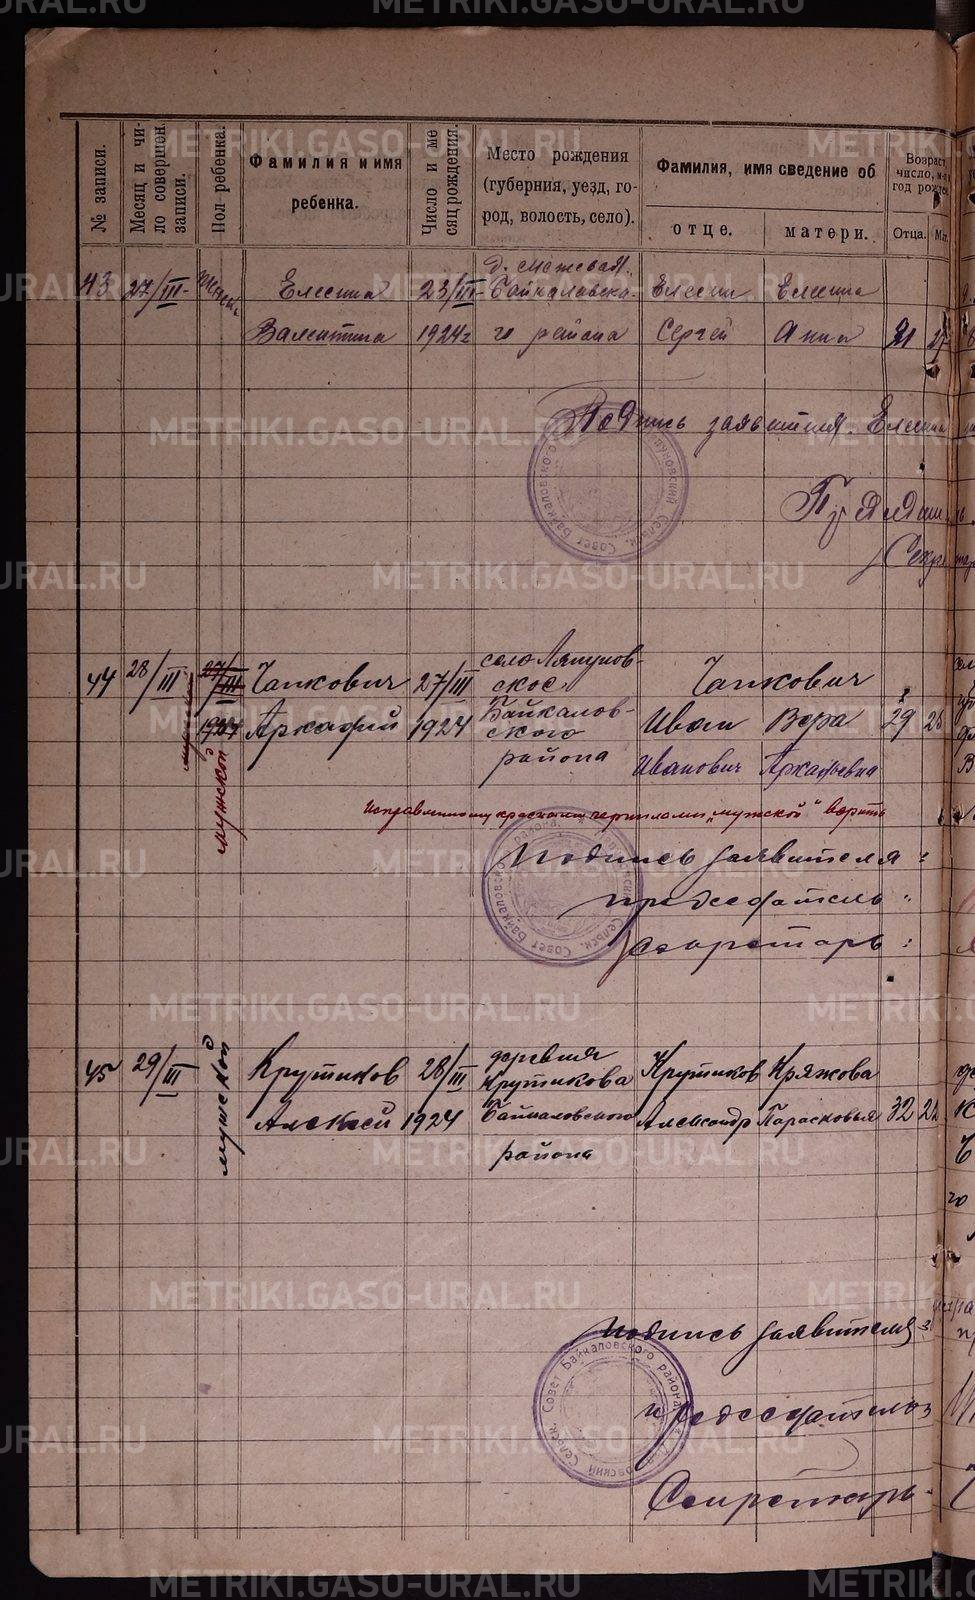 № записи.
Месяц и число совершен. записи.
Пол ребенка.
Фамилия и имя
ребенка.
Число и месяц рождения.
Место рождения
(губерния, уезд, го-
род, волость, село).
Фамилия, имя сведение об
отце.
матери.
Возраст
число,
год рожд
Отца.
43 27/III женск Елесина 23/III Байкаловско- Елесин Елесина
Валентина 1924г го района Сергей Анна 21 27
Подпись заявителя. Елесина
44 28/III 27/III Чапкович 27/III село Ляпунов-
ское
Чапкович
1924 мужской Аркадий 1924 Байкалов-
ского
района
Иван Вера 29
Иванович Аркадьевна
Исправленному красными чернилами "мужской" верить
Подпись заявителя:
председатель:
Секретарь:
45 29/III мужской Крутиков 28/III деревня
Крутикова
Крутиков Кряжова
Алексей 1924 Байкаловского Александр Парасковья 32
района
подпись заявителя
председатель
Секретарь
Сельск. Совет Байкаловского района
METRIKI.GASO-URAL.RU